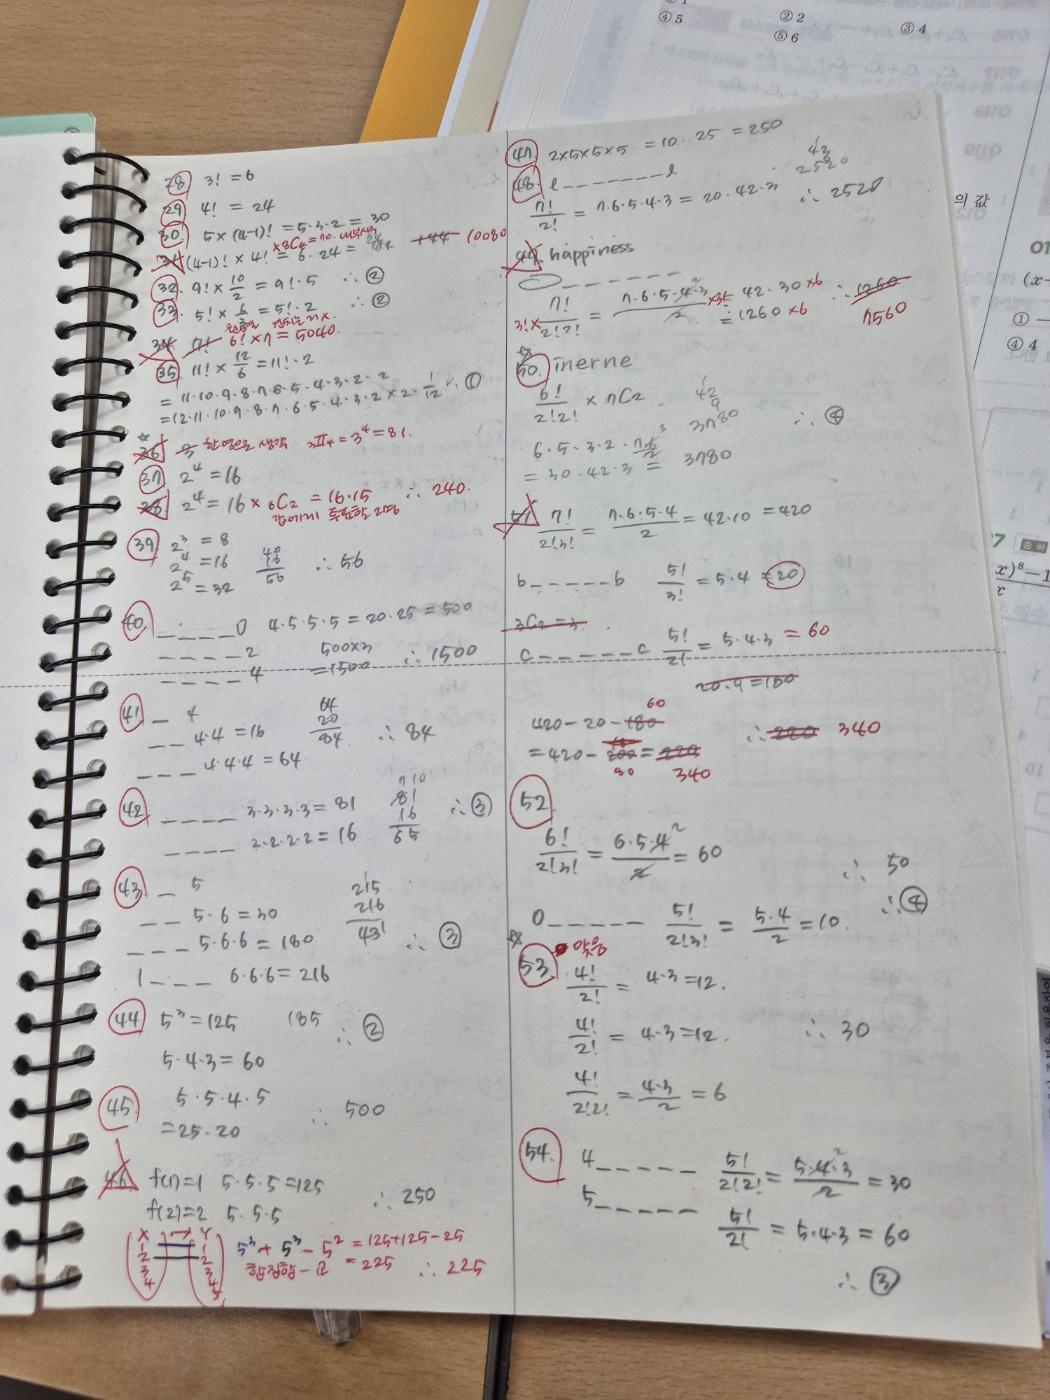 ④ 5
② 2
③ 4
⑤ 6
의 값
28 3! = 6
29 4! = 24
30 5×(4-1)! = 5·3·2 = 30
31 (4-1)! × 4! = 6·24 =
10080
32. 9! × 10/2 = 9!·5 ∴ ②
33. 5! × 6/3 = 5!·2 ∴ ②
34 7! 6! × 7 = 5040.
35 11! × 12/6 = 11!·2
= 11·10·9·8·7·6·5·4·3·2·2
= 12·11·10·9·8·7·6·5·4·3·2×2·1/12 ∴ ①
36 3 한 명으로 생각 3π4 = 3^4 = 81.
37 2^4 = 16
38 2^4 = 16 × 6C2 = 16·15 ∴ 240.
39 2^3 = 8
2^4 = 16 40 16 56 ∴ 56
2^5 = 32
40. _ _ _ _ 0 4·5·5·5 = 20·25 = 500
_ _ _ _ 2 500×3 ∴ 1500
_ _ _ _ 4 = 1500
41 _ 4 64 20 84
_ _ 4·4 = 16 ∴ 84
_ _ _ 4·4·4 = 64
42 _ _ _ _ 3·3·3·3 = 81 81 16 65 ∴ ③
_ _ _ _ 2·2·2·2 = 16
43 _ 5 215 216 431
_ _ 5·6 = 30
_ _ _ 5·6·6 = 180 ∴ ③
1 _ _ _ 6·6·6 = 216
44 5^3 = 125 185 ∴ ②
5·4·3 = 60
45 5·5·4·5
= 25·20 ∴ 500
46 f(1)=1 5·5·5 = 125
f(2)=2 5·5·5 ∴ 250
X → Y
1 1
2 2
3 3
4 4
5
5^3 + 5^3 - 5^2 = 125+125-25
= 225 ∴ 225
47 2×5×5×5 = 10·25 = 250
48. l _ _ _ _ _ _ _ l
7!/2! = 7·6·5·4·3 = 20·42·3 ∴ 2520
49 happiness
3!× 7!/2!2! = 7·6·5·4·3/2 ×3! = 42·30 ×6 ∴ 1260
= 1260 ×6 7560
50. inerne
6!/2!2! × 7C2
6·5·3·2·7·6/2 3780 ∴ ④
= 30·42·3 = 3780
51 7!/2!3! = 7·6·5·4/2 = 42·10 = 420
b _ _ _ _ _ b 5!/3! = 5·4 = 20
3C2 = 3.
c _ _ _ _ _ c 5!/2! = 5·4·3 = 60
20·9 = 180
60
420 - 20 - 180 ∴ 220 340
= 420 - 200 = 220
80 340
52
6!/2!3! = 6·5·4/2 = 60 ∴ 50
∴ ④
0 _ _ _ _ _ 5!/2!3! = 5·4/2 = 10.
53
4!/2! = 4·3 = 12.
4!/2! = 4·3 = 12. ∴ 30
4!/2!2! = 4·3/2 = 6
54. 4 _ _ _ _ _ 5!/2!2! = 5·4·3/2 = 30
5 _ _ _ _ _ 5!/2! = 5·4·3 = 60
∴ ③